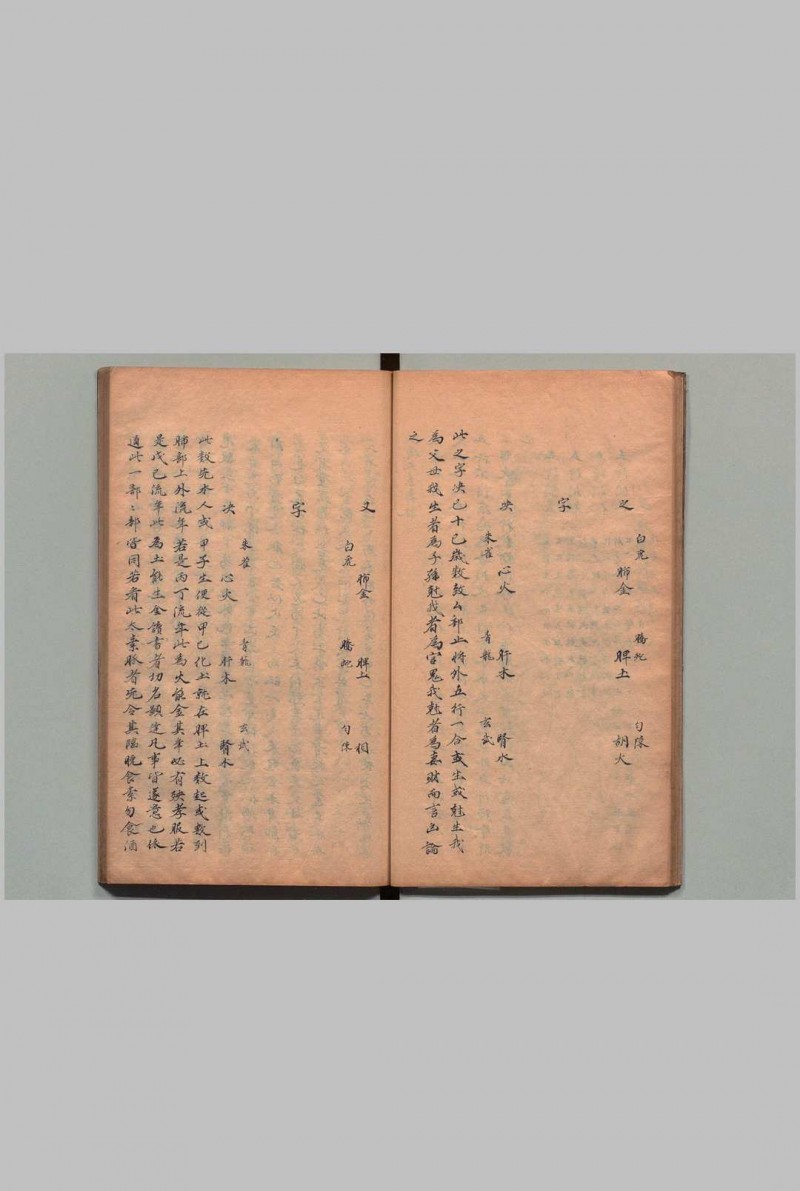 之
白虎 肺金
螣蛇 脾土
勾陳 胡火
字
决
朱雀 心火
青龍 肝木
玄武 腎水
此之字决已十已歲数数公部止將外五行一合或生或尅生我
為父母我生者為子孫尅我者為官鬼我尅者為妻財而言也論
之
又
白虎 肺金
螣蛇 脾土
勾陳 相
字
决
朱雀 心火
青龍 肝木
玄武 腎水
此数先水人或甲子生便從甲己化土就在脾土上数起或数到
肺部上外流年若是丙丁流年此為火能金其年必有殃孝服若
是戊己流年此為土能生金讀書者功名顯達凡事皆遂意也依
通此一部部皆同若看此太素脈者先合其陽晚食素勿食酒